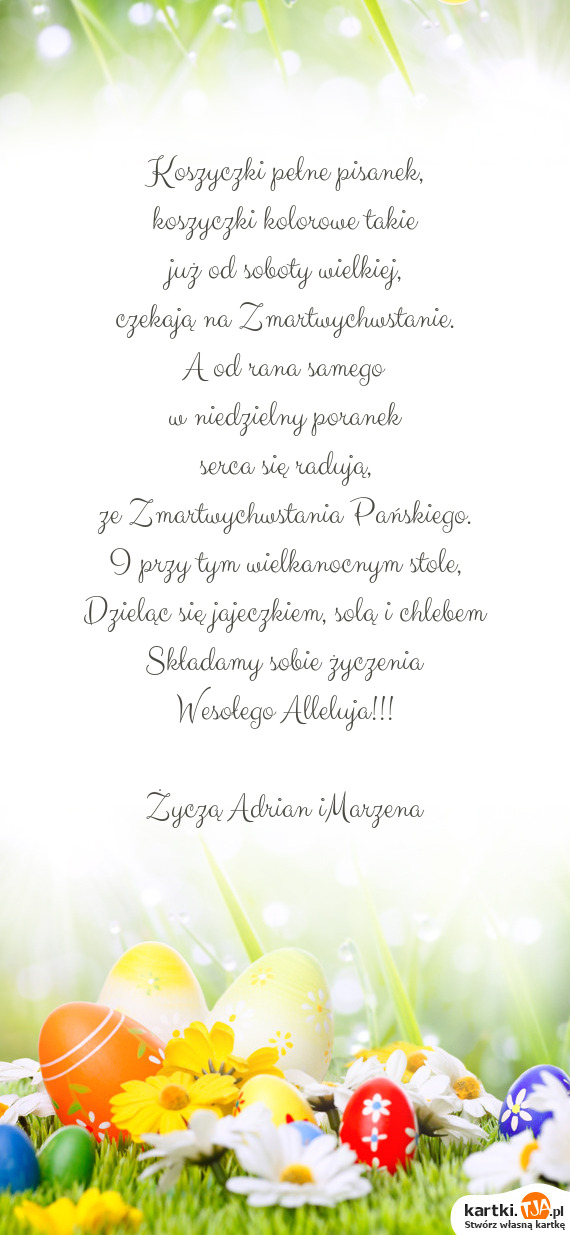 Koszyczki pełne pisanek,
koszyczki kolorowe takie
już od soboty wielkiej,
czekają na Zmartwychwstanie.
A od rana samego
w niedzielny poranek
serca się radują,
ze Zmartwychwstania Pańskiego.
I przy tym wielkanocnym stole,
Dzieląc się jajeczkiem, solą i chlebem
Składamy sobie życzenia
Wesołego Alleluja!!!
Życzą Adrian iMarzena
kartki.TJA.pl
Stwórz własną kartkę